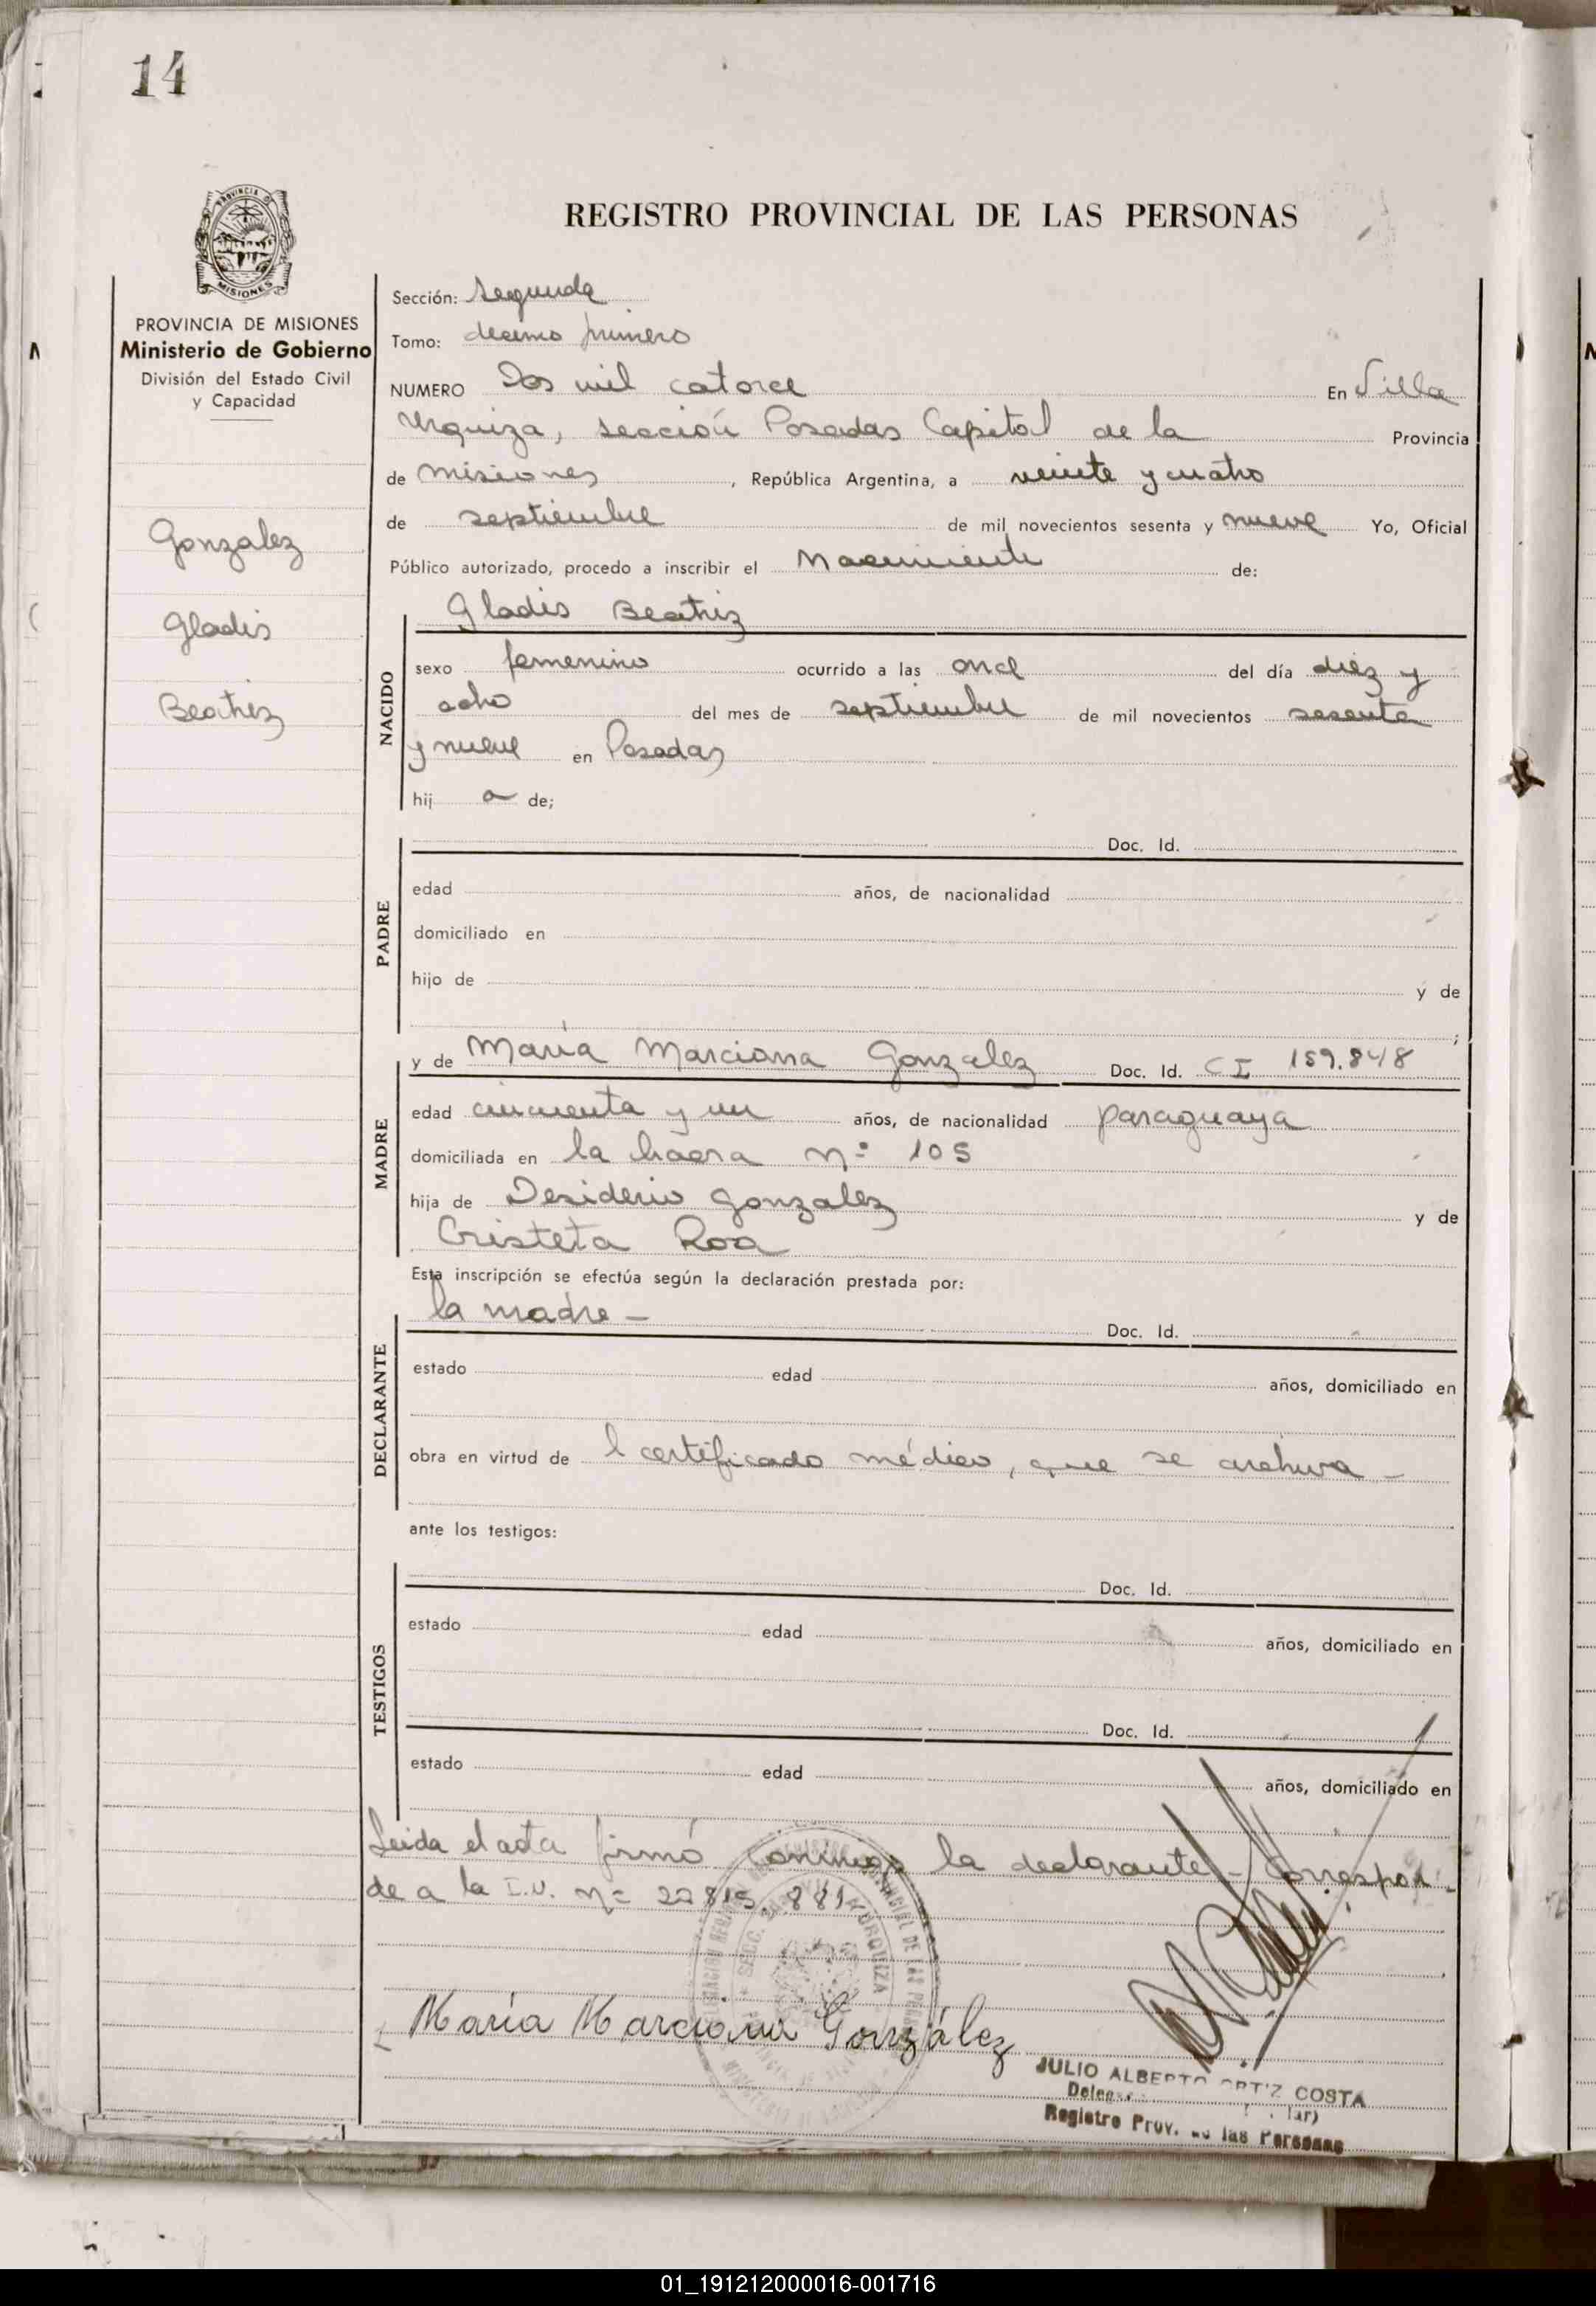 14
PROVINCIA DE
MISIONES
REGISTRO PROVINCIAL DE LAS PERSONAS
PROVINCIA DE MISIONES
Ministerio de Gobierno
División del Estado Civil
y Capacidad
Gonzalez
Gladis
Beatriz
Sección: segunda
Tomo: decimo primero
NUMERO Dos mil catorce En Villa
Urquiza, sección Posadas Capital de la Provincia
de misiones, República Argentina, a veinte y cuatro
de septiembre de mil novecientos sesenta y nueve Yo, Oficial
Público autorizado, procedo a inscribir el Nacimiento de:
Gladis Beatriz
NACIDO
sexo femenino ocurrido a las once del día diez y
ocho del mes de septiembre de mil novecientos sesenta
y nueve en Posadas
hij a de;
PADRE
Doc. Id.
edad años, de nacionalidad
domiciliado en
hijo de y de
;
MADRE
y de María Marciana Gonzalez Doc. Id. CI 159.848
edad cincuenta y un años, de nacionalidad paraguaya
domiciliada en la hacra nº 105
hija de Desiderio Gonzalez y de
Cristeta Roa
Esta inscripción se efectúa según la declaración prestada por:
DECLARANTE
la madre - Doc. Id.
estado edad años, domiciliado en
obra en virtud de l certificado médico, que se archiva -
ante los testigos:
TESTIGOS
Doc. Id.
estado edad años, domiciliado en
Doc. Id.
estado edad años, domiciliado en
Leida el acta firmó conmigo la declarante - Correspon-
de a la I.N. nº 20815.881
María Marciana González
JULIO ALBERTO ORTIZ COSTA
Registro Prov. de las Personas
01_191212000016-001716